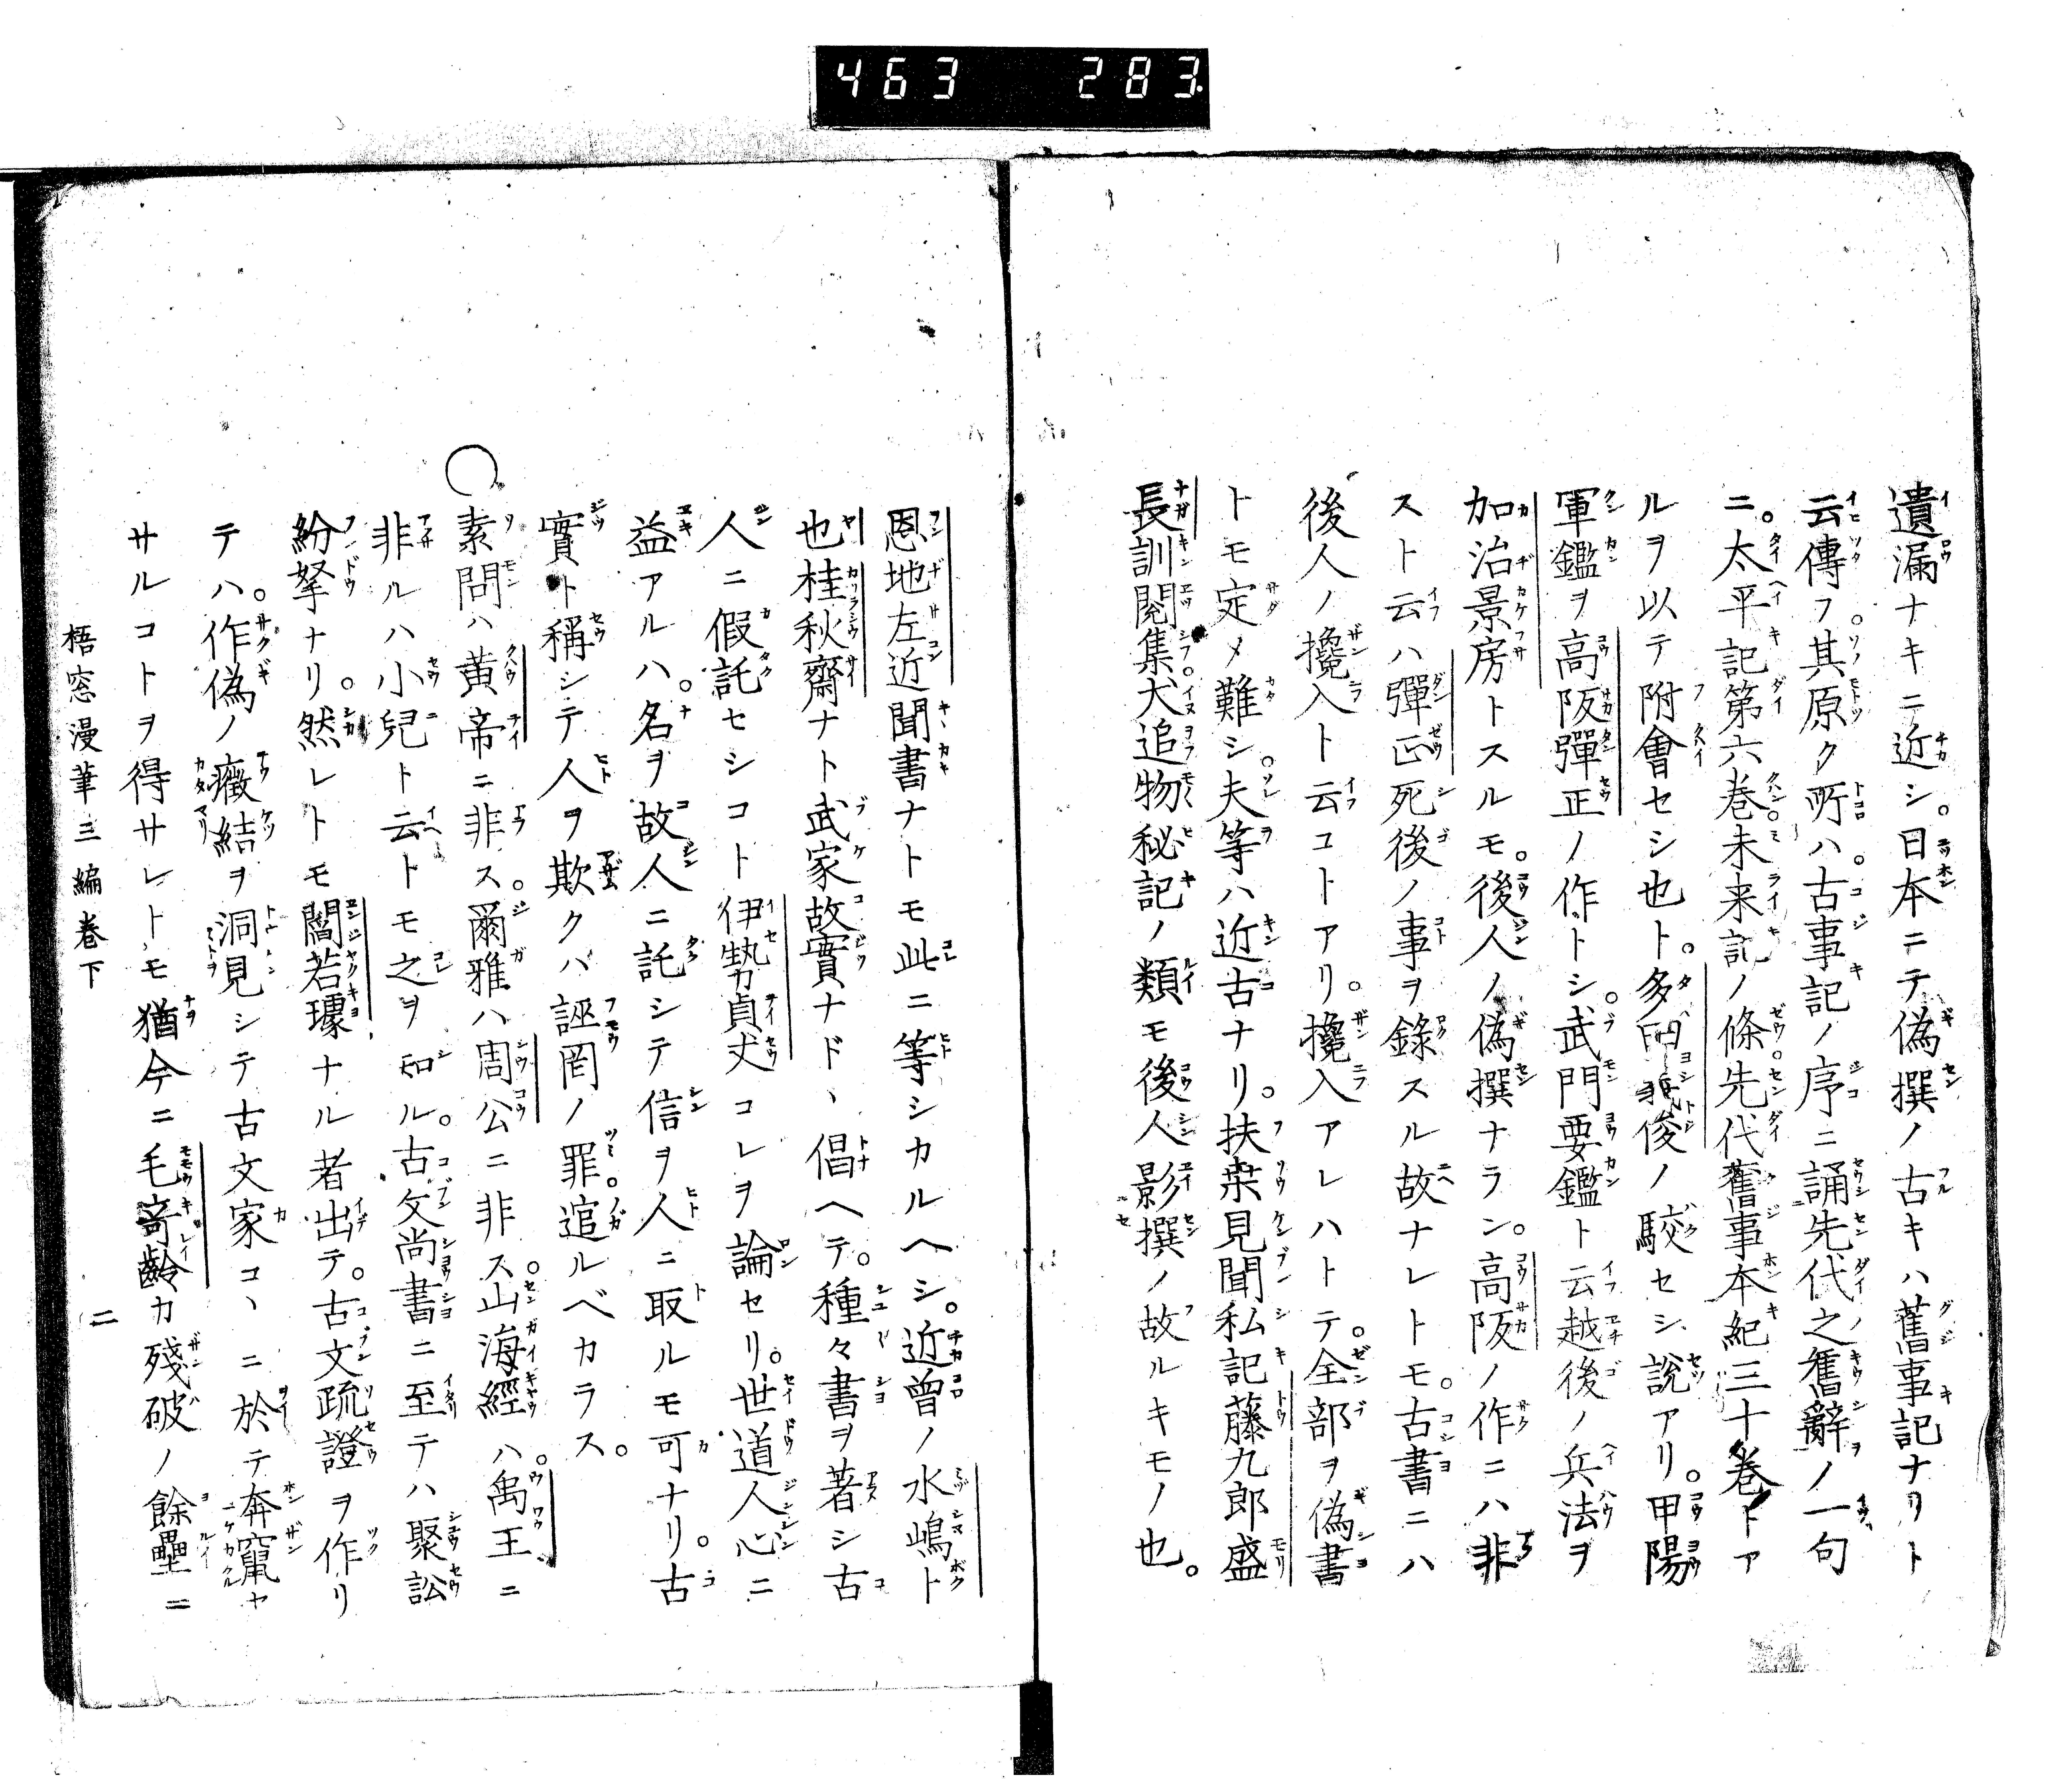 463 283
遺漏ナキニ近シ。日本ニテ偽撰ノ古キハ舊事記ナリト
云傳フ。其原ク所ハ。古事記ノ序ニ誦先代之舊辭ノ一句
ニ。太平記第六卷。未来記ノ條。先代舊事本紀三十卷トア
ルヲ以テ附會セシ也ト。多田義俊ノ駁セシ說アリ。甲陽
軍鑑ヲ高阪彈正ノ作トシ。武門要鑑ト云越後ノ兵法ヲ
加治景房トスルモ。後人ノ偽撰ナラン。高阪ノ作ニハ非
スト云ハ彈正死後ノ事ヲ錄スル故ナレトモ。古書ニハ
後人ノ攙入ト云コトアリ。攙入アレハトテ。全部ヲ偽書
トモ定メ難シ。夫等ハ近古ナリ。扶桒見聞私記藤九郎盛
長訓閱集。犬追物秘記ノ類モ後人影撰ノ故ルキモノ也。
恩地左近聞書ナトモ此ニ等シカルヘシ。近曽ノ水嶋ト
也桂秋齋ナト武家故實ナドヽ倡ヘテ。種々書ヲ著シ古
人ニ假託セシコト伊勢貞丈コレヲ論セリ。世道人心ニ
益アルハ。名ヲ故人ニ託シテ信ヲ人ニ取ルモ可ナリ。古
實ト稱シテ人ヲ欺クハ誣罔ノ罪。逭ルベカラス。
○素問ハ黃帝ニ非ス。爾雅ハ周公ニ非ス。山海經ハ。禹王ニ
非ルハ小兒ト云トモ之ヲ知ル。古文尚書ニ至テハ聚訟
紛拏ナリ。然レトモ閻若璩ナル者出テ。古文疏證ヲ作リ
テハ。作偽ノ癥結ヲ洞見シテ古文家コヽニ於テ奔竄セ
サルコトヲ得サレトモ猶今ニ毛奇齡カ殘破ノ餘壘ニ
梧窓漫筆三編卷下 二